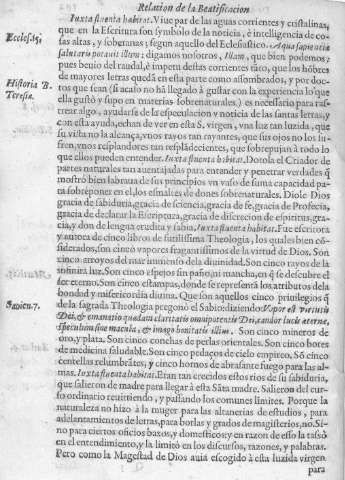 Relacion de la Beatificacion
Iuxta fluenta habitat. Viue par de las aguas corrientes y cristalinas,
que en la Escritura son symbolo de la noticia, è inteligencia de co-
Eccles. 15.
sas altas, y soberanas; segun aquello del Eclesiastico. Aqua sapientiæ
salutaris potauit illum; digamos nosotros, Illam, que bien podemos;
pues beuio del raudal, è impetu destas corrientes tãto, que los hõbres
de mayores letras quedã en esta parte assombrados, y por doc-
tos que sean (si acaso no hã llegado à gustar con la experiencia lo que
Historia B.
Teresæ.
ella gustò y supo en materias sobrenaturales) es necessario para ras-
trear algo, ayudarse de la especulacion y noticia de las santas letras, y
con esta ayuda, echan de ver en esta S. virgen, vna luz tan luzida, que
su vista no la alcança, vnos rayos tan rayantes, que sus ojos no los su-
fren, vnos resplandores tan resplãdecientes, que sobrepujan à todo lo
que ellos pueden entender. Iuxta fluenta habitat. Dotola el Criador de
partes naturales tan auentajadas para entender y penetrar verdades q̃
mostrò bien labraua de sus principios vn vaso de suma capacidad pa-
ra sobreponer en el los esmaltes de dones sobrenaturales. Diole Dios
gracia de sabiduria, gracia de sciencia, gracia de fe, gracia de Profecia,
gracia de declarar la Escriptura, gracia de discrecion de espiritus, gra-
cia, y don de lengua erudita y sabia. Iuxta fluenta habitat. Fue escritora
y autora de cinco libros de sutilissima Theologia, los quales bien cõ-
siderados, son cinco vapores fragantissimos de la virtud de Dios. Son
cinco arroyos del mar immenso de la diuinidad. Son cinco rayos de la
infinita luz. Son cinco espejos sin paño, ni mancha, en q̃ se descubre el
ser eterno. Son cinco estampas, donde se representã los atributos de la
bondad y misericordia diuina. Que son aquellos cinco priuilegios q̃
Sapien. 7.
de la sagrada Theologia pregonò el Sabio diziendo Vapor est virtutis
Dei, & emanatio quædam claritatis omnipotentis Dei, candor lucis æternæ,
speculum sine macula, & imago bonitatis illius. Son cinco mineros de
oro, y plata. Son cinco conchas de perlas orientales. Son cinco botes
de medicina saludable. Son cinco pedaços de cielo empireo. Sõ cinco
centellas relumbrãtes, y cinco hornos de abrasante fuego para las al-
mas. Iuxta fluenta habitat. Eran tan crecidos estos rios de su sabiduria,
que salieron de madre para llegar à esta Sãta madre. Salieron del cur-
so ordinario restritiendo, y passando los comunes limites. Porque la
naturaleza no hizo à la muger para las altanerias de estudios, para
adelantamientos de letras, para borlas y grados de magisterios, no. Si-
no para ciertos oficios baxos, y domesticos: y en razon de esso la tassò
en el entendimiento, y la limitò en los discursos, razones, y palabras.
Pero como la Magestad de Dios auia escogido à esta luzida virgen
para